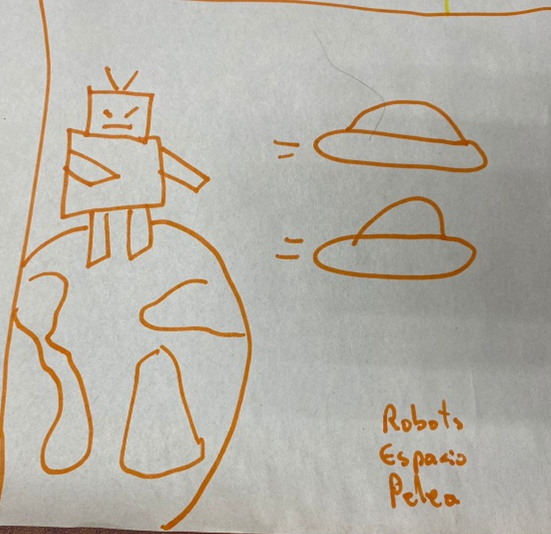 Robots
Espacio
Pelea